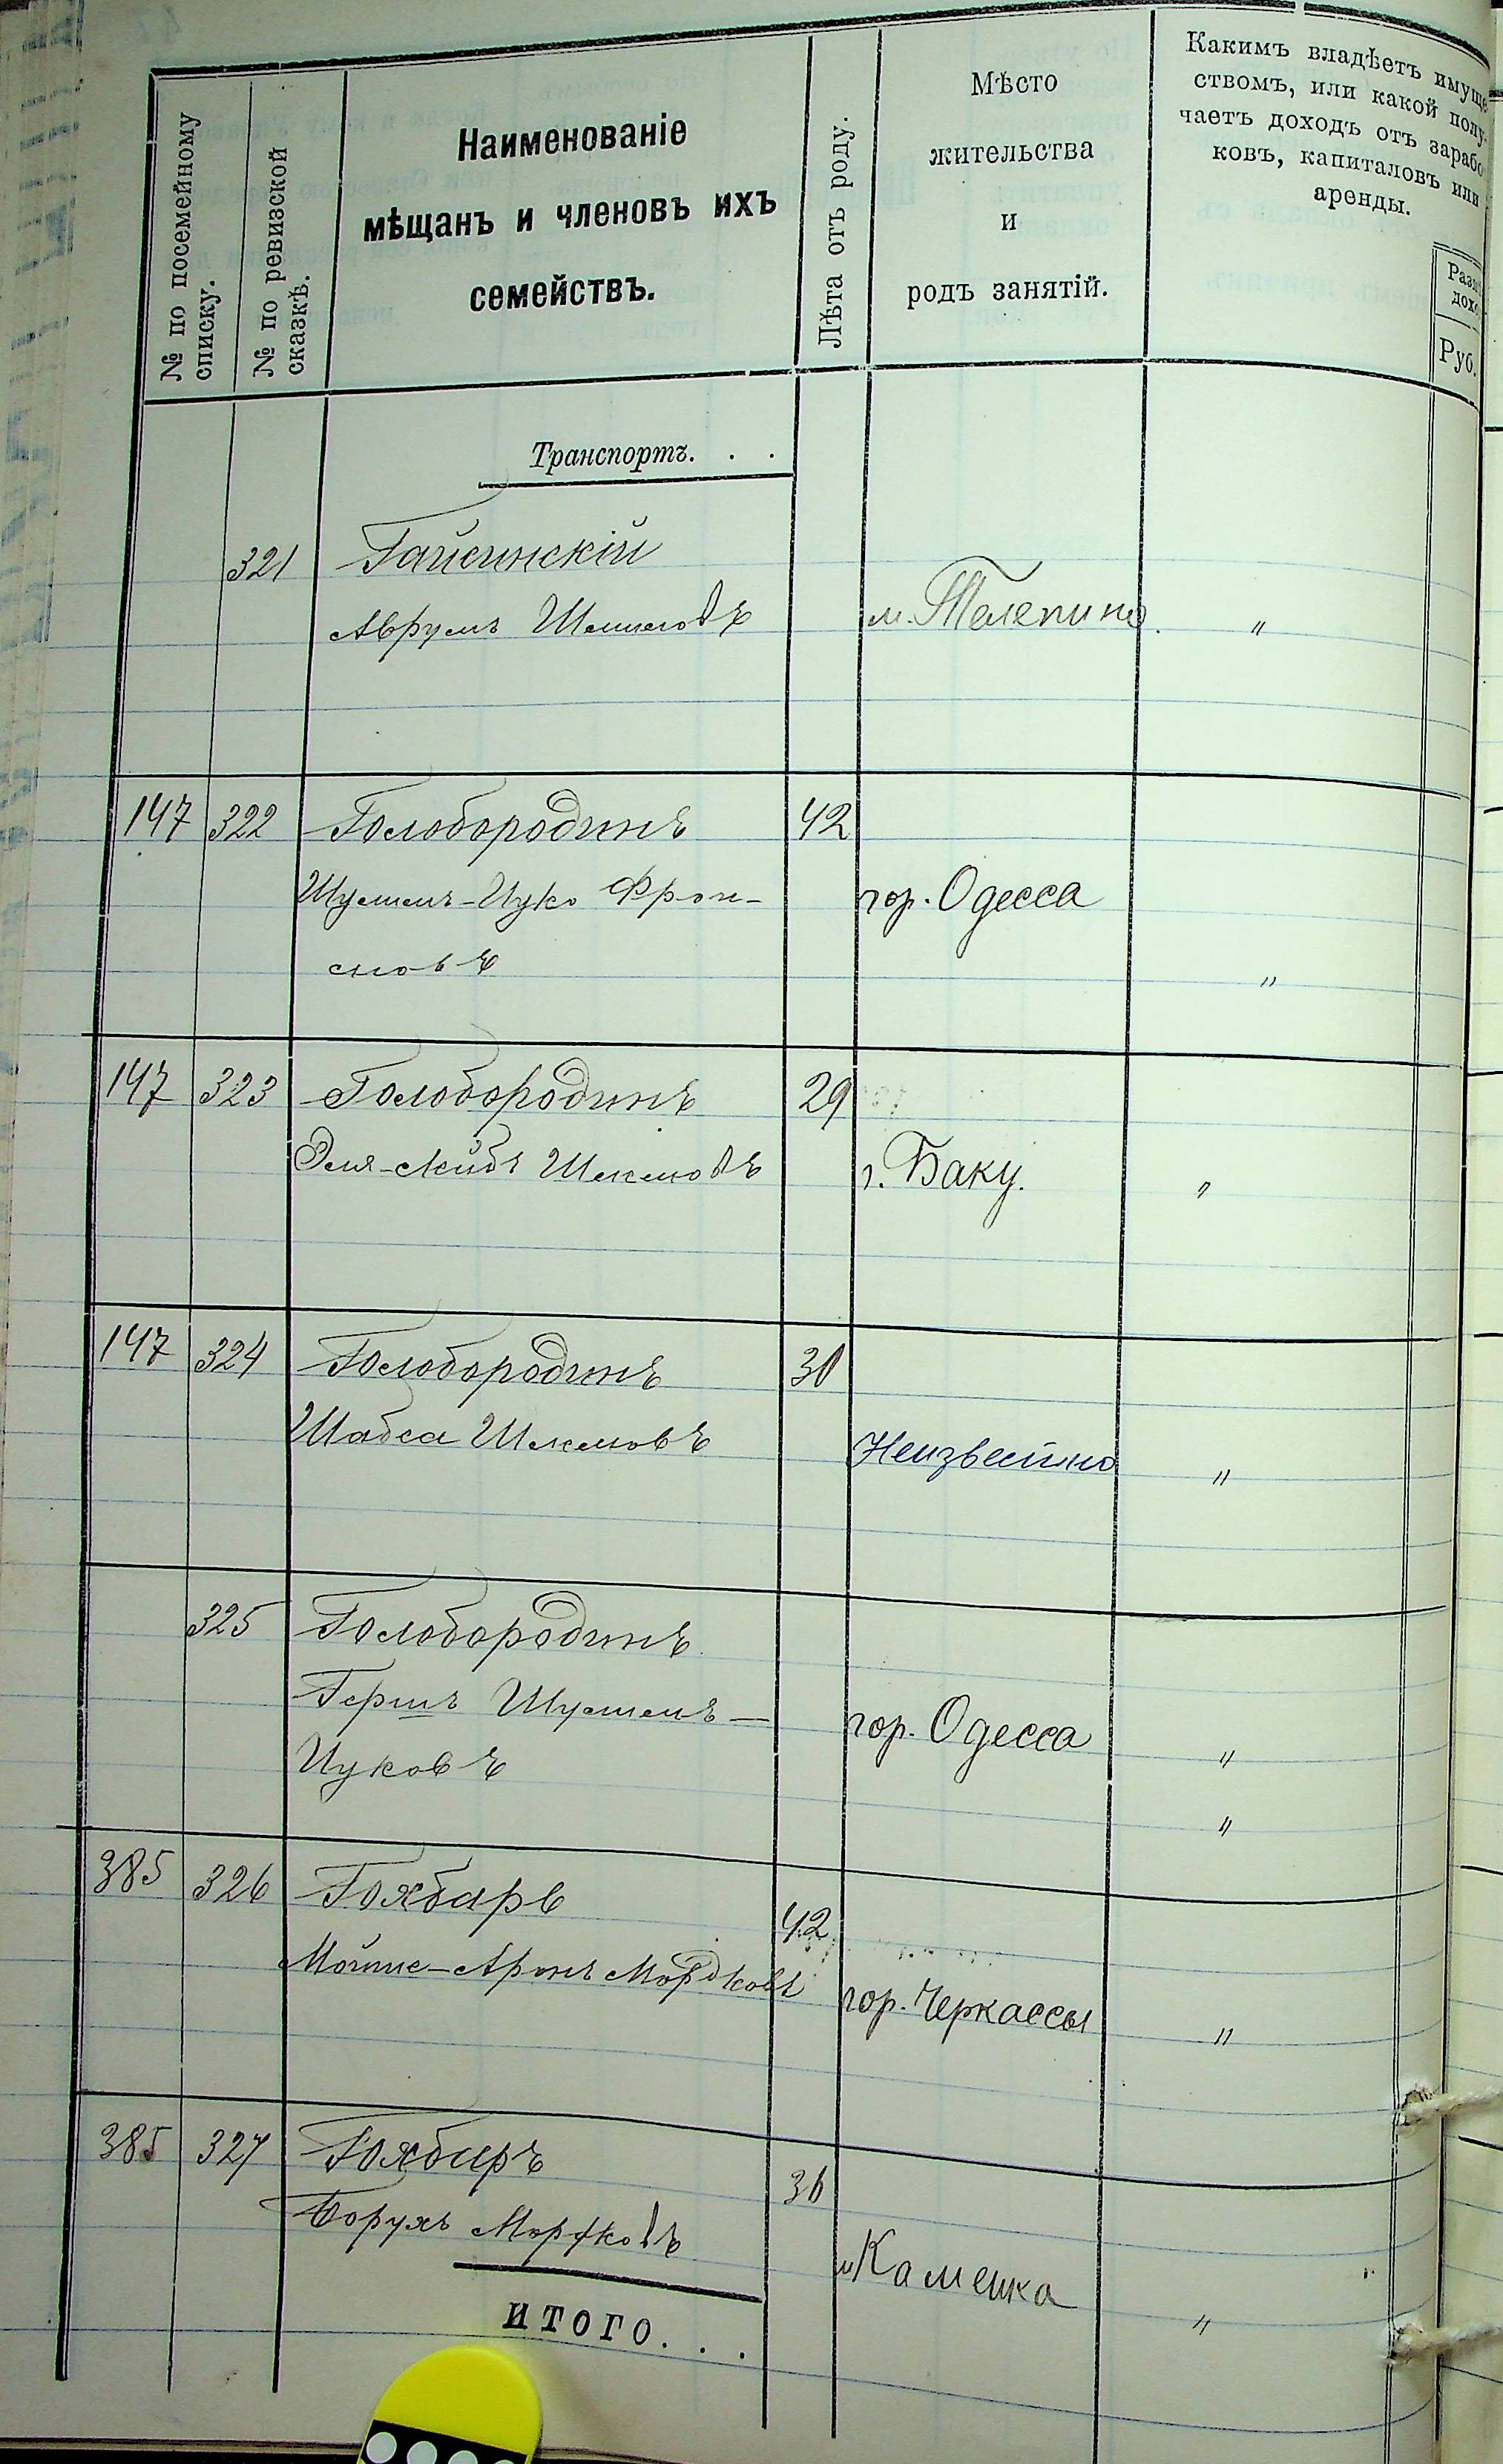 № по посемейному
списку.
№ по ревизской
сказкѣ.
Наименованіе
мѣщанъ и членовъ ихъ
семействъ.
Лѣта отъ роду.
Мѣсто
жительства
и
родъ занятій.
Какимъ владѣетъ имуще
ствомъ, или какой полу-
чаетъ доходъ отъ зарабо
ковъ, капиталовъ или
аренды.
Руб.
Транспортъ. . .
321 Гайсинскій
Аврумъ м. Телепино. "
147 322 Голобородинъ 42
гор. Одесса
"
147 323 Голобородинъ 29
г. Баку. "
147 324 Голобородинъ 30
Шабса Шлемовъ Неизвестно "
325 Голобородинъ
Гершъ гор. Одесса "
Цуковъ "
385 326 Гохбаръ 42
Мойше-Аронъ Мордковъ гор. Черкассы "
385 327 Гохбаръ
Борухъ Мордковъ м Каменка "
ИТОГО. . .